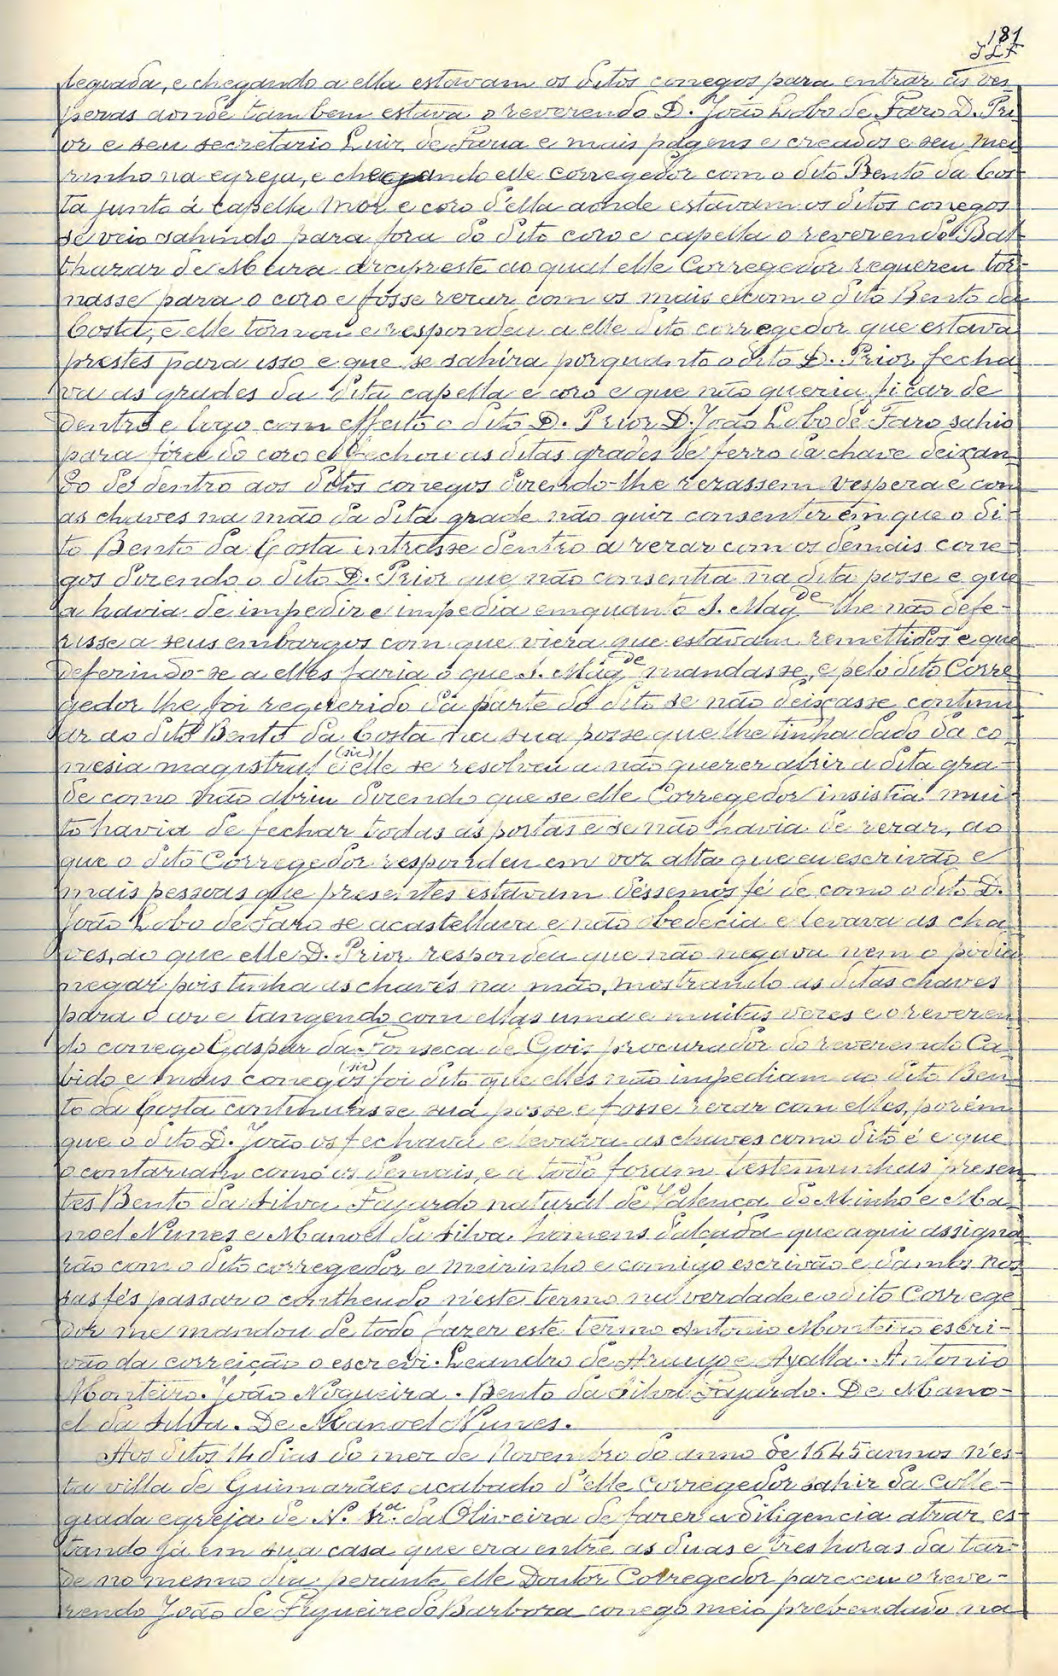 181
JLF
leguada, e chegando a ella estavam os ditos conegos para entrar às ves
peras aonde tambem estava o reverendo D. João Lobo de Faro D. Pri
or e seu secretario Luiz de Faria e mais págens e creados e seu mei
rinho na egreja, e chegando elle corregedor com o dito Bento da Cos
ta junto á capella mor e coro d'ella aonde estavam os ditos conegos
se veio sahindo para fora do dito coro e capella o reverendo Bal
thazar de Meira arcipreste ao qual elle Corregedor requereu tor-
nasse para o coro e fosse rezar com os mais e com o dito Bento da
Costa, e elle tornou e respondeu a elle dito corregedor que estava
prestes para isso e que se sahira porquanto o dito D. Prior fecha
va as grades da dita capella e coro e que não queria ficar de
dentro e logo com effeito o dito D. Prior D. João Lobo de Faro sahio
para fóra do coro e fechou as ditas grades de ferro da chave deixan-
do de dentro aos ditos conegos dizendo-lhe rezassem vespera e com
as chaves na mão da dita grade não quiz consentir em que o di-
to Bento da Costa intrasse dentro a rezar com os demais cone-
gos dizendo o dito D. Prior que não consentia na dita posse e que
a havia de impedir e impedia emquanto S. Mag.de lhe não defe-
risse a seus embargos com que viera que estavam remettidos e que
deferindo-se a elles faria o que S. Mag.de mandasse, e pelo dito Corre
gedor lhe foi requerido da parte do dito se não deixasse continu
ar ao dito Bento da Costa na sua posse que lhe tinha dado da co-
nesia magistral (sic) e elle se resolveu a não querer abrir a dita gra-
de como não abriu dizendo que se elle Corregedor insistia mui-
to havia de fechar todas as portas e se não havia de rezar, ao
que o dito Corregedor respondeu em voz alta que eu escrivão e
mais pessoas que presentes estavam déssemos fé de como o dito D.
João Lobo de Faro se acastellava e não obedecia e levava as cha-
ves, ao que elle D. Prior respondeu que não negava nem o podia
negar pois tinha as chaves na mão, mostrando as ditas chaves
para o ar e tangendo com ellas uma e muitas vezes e o reveren
do conego Gaspar da Fonseca de Gois procurador do reverendo Ca-
bido e mais conegos (sic) foi dito que elles não impediam ao dito Ben-
to da Costa continuasse sua posse e fosse rezar com elles, porém
que o dito D. João os fechava e levava as chaves como dito é e que
o contariam como os demais, e a todo foram testemunhas presen
tes Bento da Silva Fajardo natural de Valença do Minho e Ma-
noel Nunes e Manoel da Silva homens d'alçada que aqui assigna
rão com o dito corregedor e meirinho e comigo escrivão e damos nos
sas fés passar o contheudo n'este termo na verdade e o dito Correge
dor me mandou de todo fazer este termo Antonio Monteiro escri-
vão da correição o escrevi. Leandro de Araujo e Ayalla. Antonio
Monteiro. João Nogueira. Bento da Silva Fajardo. De Mano-
el da Silva. De Manoel Nunes.
Aos ditos 14 dias do mez de Novembro do anno de 1645 annos n'es-
ta villa de Guimarães acabado d'elle corregedor sahir da Colle-
giada egreja de N. Sr.a da Oliveira de fazer a diligencia atraz es-
tando já em sua casa que era entre as duas e tres horas da tar-
de no mesmo dia perante elle Doutor Corregedor pareceu o reve-
rendo João de Figueiredo Barboza conego meio prebendado na